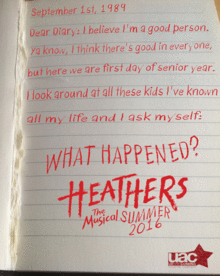 September 1st, 1989
Dear Diary: I believe I'm a good person.
Ya know, I think there's good in everyone,
but here we are first day of senior year.
I look around at all these kids I've known
all my life and I ask myself:
WHAT HAPPENED?
HEATHERS
The Musical SUMMER
2016
uac